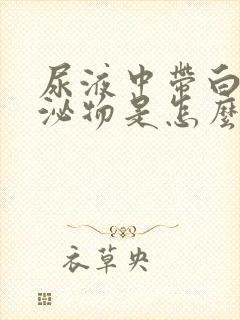 尿液中带白
泌物是怎麼
衣草央